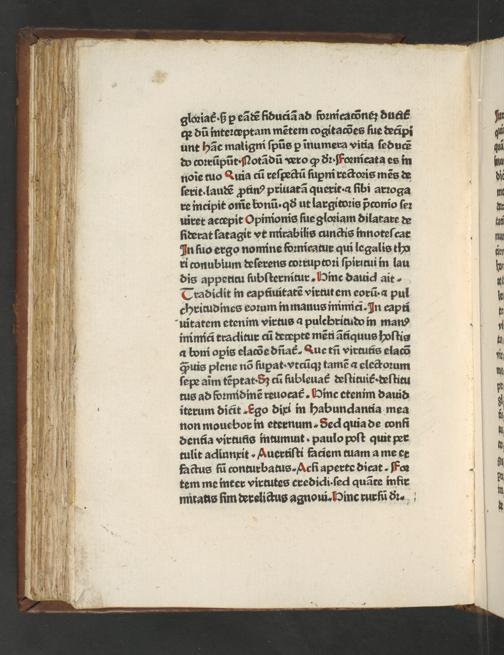 gloriat᷒·ß ꝑ eādē fiduciā ad fornicacōneꝫ ducit᷒
qꝛ dū interceptam mētem cogitacōes sue decipi
unt hāc maligni spūs ꝑ inumera vitia seducē
do corrūpūt·Notādū vero ꝙ dr̄·Fornicata es in
noīe tuo Quia cū respectū supni rectoris mēs de
serit·laudē ꝓtinꝰ priuatā querit·⁊ sibi arroga
re incipit omē bonū·qd ut largitoris p̄conio ser
uiret accepit Opinionis sue gloriam dilatare de
siderat satagit vt mirabilis cunctis innotescat
In suo ergo nomine fornicatur qui legalis tho
ri conubium deserens corruptori spiritui in lau
dis appetitu substernitur·Hinc dauid ait·
Tradidit in captiuitatē virtutem eorū·⁊ pul
chritudines eorum in manus inimici·In capti
uitatem etenim virtus ⁊ pulchritudo in manꝰ
inimici traditur cū decepte mēti ātiquus hostis
⁊ boni opis elacōe dn̄at᷒·Que tn̄ virtutis elacō
ꝙuis plene nō supat·vtcūqꝫ tamē ⁊ electorum
sepe aim tēptat·Sꝫ cū subleuat᷒ destituit᷒·destitu
tus ad formidinē reuocat᷒·Hinc etenim dauid
iterum dicit·Ego dixi in habundantia mea
non mouebor in eternum·Sed quia de confi
dentia virtutis intumuit·paulo post quit per
tulit adiunxit·Auertisti faciem tuam a me et
factus sū conturbatus·Acsi aperte dicat·For
tem me inter virtutes credidi·sed quāte infir
mitatis sim derelictus agnoui·Hinc rursū dr̄·